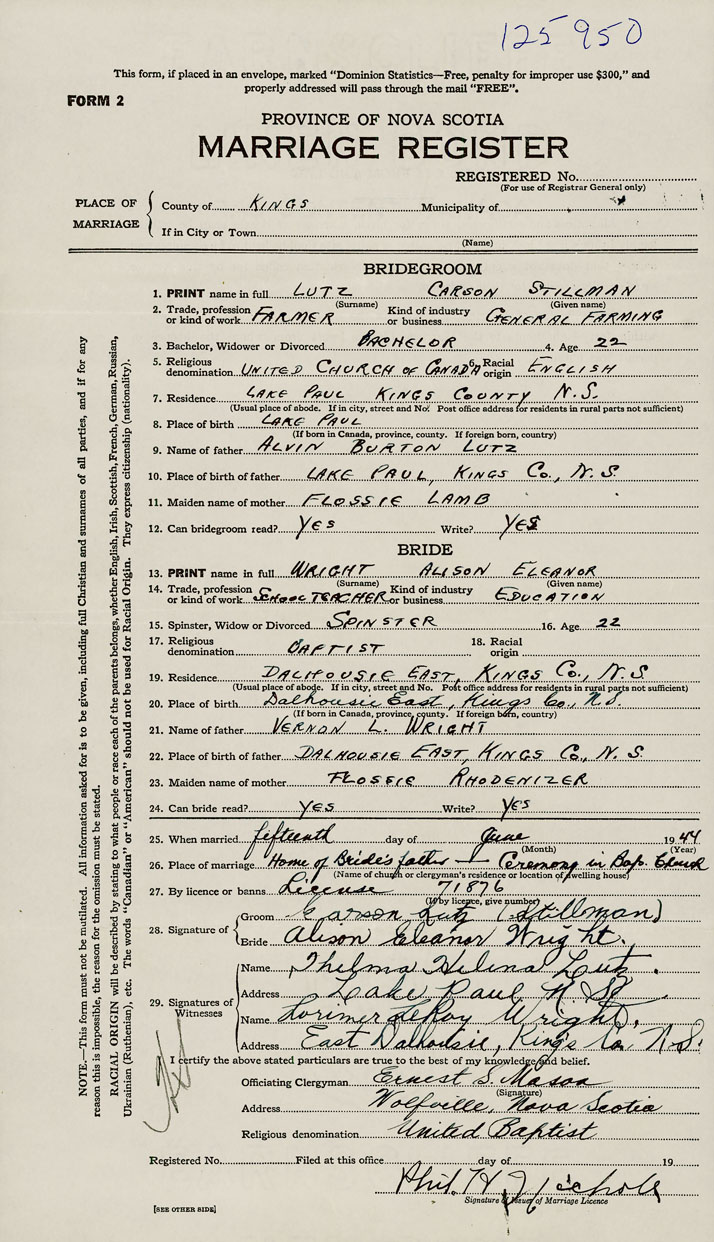 125950
This form, if placed in an envelope, marked "Dominion Statistics—Free, penalty for improper use $300," and
properly addressed will pass through the mail "FREE".
FORM 2
PROVINCE OF NOVA SCOTIA
MARRIAGE REGISTER
REGISTERED No.
(For use of Registrar General only)
PLACE OF MARRIAGE
County of KINGS Municipality of
If in City or Town
(Name)
BRIDEGROOM
1. PRINT name in full LUTZ CARSON STILLMAN
(Surname) (Given name)
2. Trade, profession or kind of work FARMER Kind of industry or business GENERAL FARMING
3. Bachelor, Widower or Divorced BACHELOR 4. Age 22
5. Religious denomination UNITED CHURCH OF CANADA 6. Racial origin ENGLISH
7. Residence LAKE PAUL KINGS COUNTY N.S.
(Usual place of abode. If in city, street and No. Post office address for residents in rural parts not sufficient)
8. Place of birth LAKE PAUL
(If born in Canada, province, county. If foreign born, country)
9. Name of father ALVIN BURTON LUTZ
10. Place of birth of father LAKE PAUL, KINGS Co., N.S.
11. Maiden name of mother FLOSSIE LAMB
12. Can bridegroom read? YES Write? YES
BRIDE
13. PRINT name in full WRIGHT ALISON ELEANOR
(Surname) (Given name)
14. Trade, profession or kind of work SCHOOL TEACHER Kind of industry or business EDUCATION
15. Spinster, Widow or Divorced SPINSTER 16. Age 22
17. Religious denomination BAPTIST 18. Racial origin
19. Residence DALHOUSIE EAST, KINGS Co., N.S.
(Usual place of abode. If in city, street and No. Post office address for residents in rural parts not sufficient)
20. Place of birth Dalhousie East, Kings Co., N.S.
(If born in Canada, province, county. If foreign born, country)
21. Name of father VERNON L. WRIGHT
22. Place of birth of father DALHOUSIE EAST, KINGS Co., N.S.
23. Maiden name of mother FLOSSIE RHODENIZER
24. Can bride read? YES Write? YES
25. When married fifteenth day of June 1944
(Month) (Year)
26. Place of marriage Home of Bride's father — Ceremony in Bap. Church
(Name of church or clergyman's residence or location of dwelling house)
27. By licence or banns License 71876
(If by licence, give number)
28. Signature of
Groom Carson Lutz (Stillman)
Bride Alison Eleanor Wright.
29. Signatures of Witnesses
Name Thelma Helena Lutz.
Address Lake Paul N.S.
Name Lorimer LeRoy Wright.
Address East Dalhousie, King's Co. N.S.
I certify the above stated particulars are true to the best of my knowledge and belief.
Officiating Clergyman Ernest S. Mason
(Signature)
Address Wolfville, Nova Scotia
Religious denomination United Baptist
Registered No. Filed at this office day of 19
Phil. H. Nichols
Signature of Issuer of Marriage Licence
[SEE OTHER SIDE]
NOTE.—This form must not be mutilated. All information asked for is to be given, including full Christian and surnames of all parties, and if for any
reason this is impossible, the reason for the omission must be stated.
RACIAL ORIGIN will be described by stating to what people or race each of the parents belongs, whether English, Irish, Scottish, French, German, Russian,
Ukrainian (Ruthenian), etc. The words "Canadian" or "American" should not be used for Racial Origin. They express citizenship (nationality).